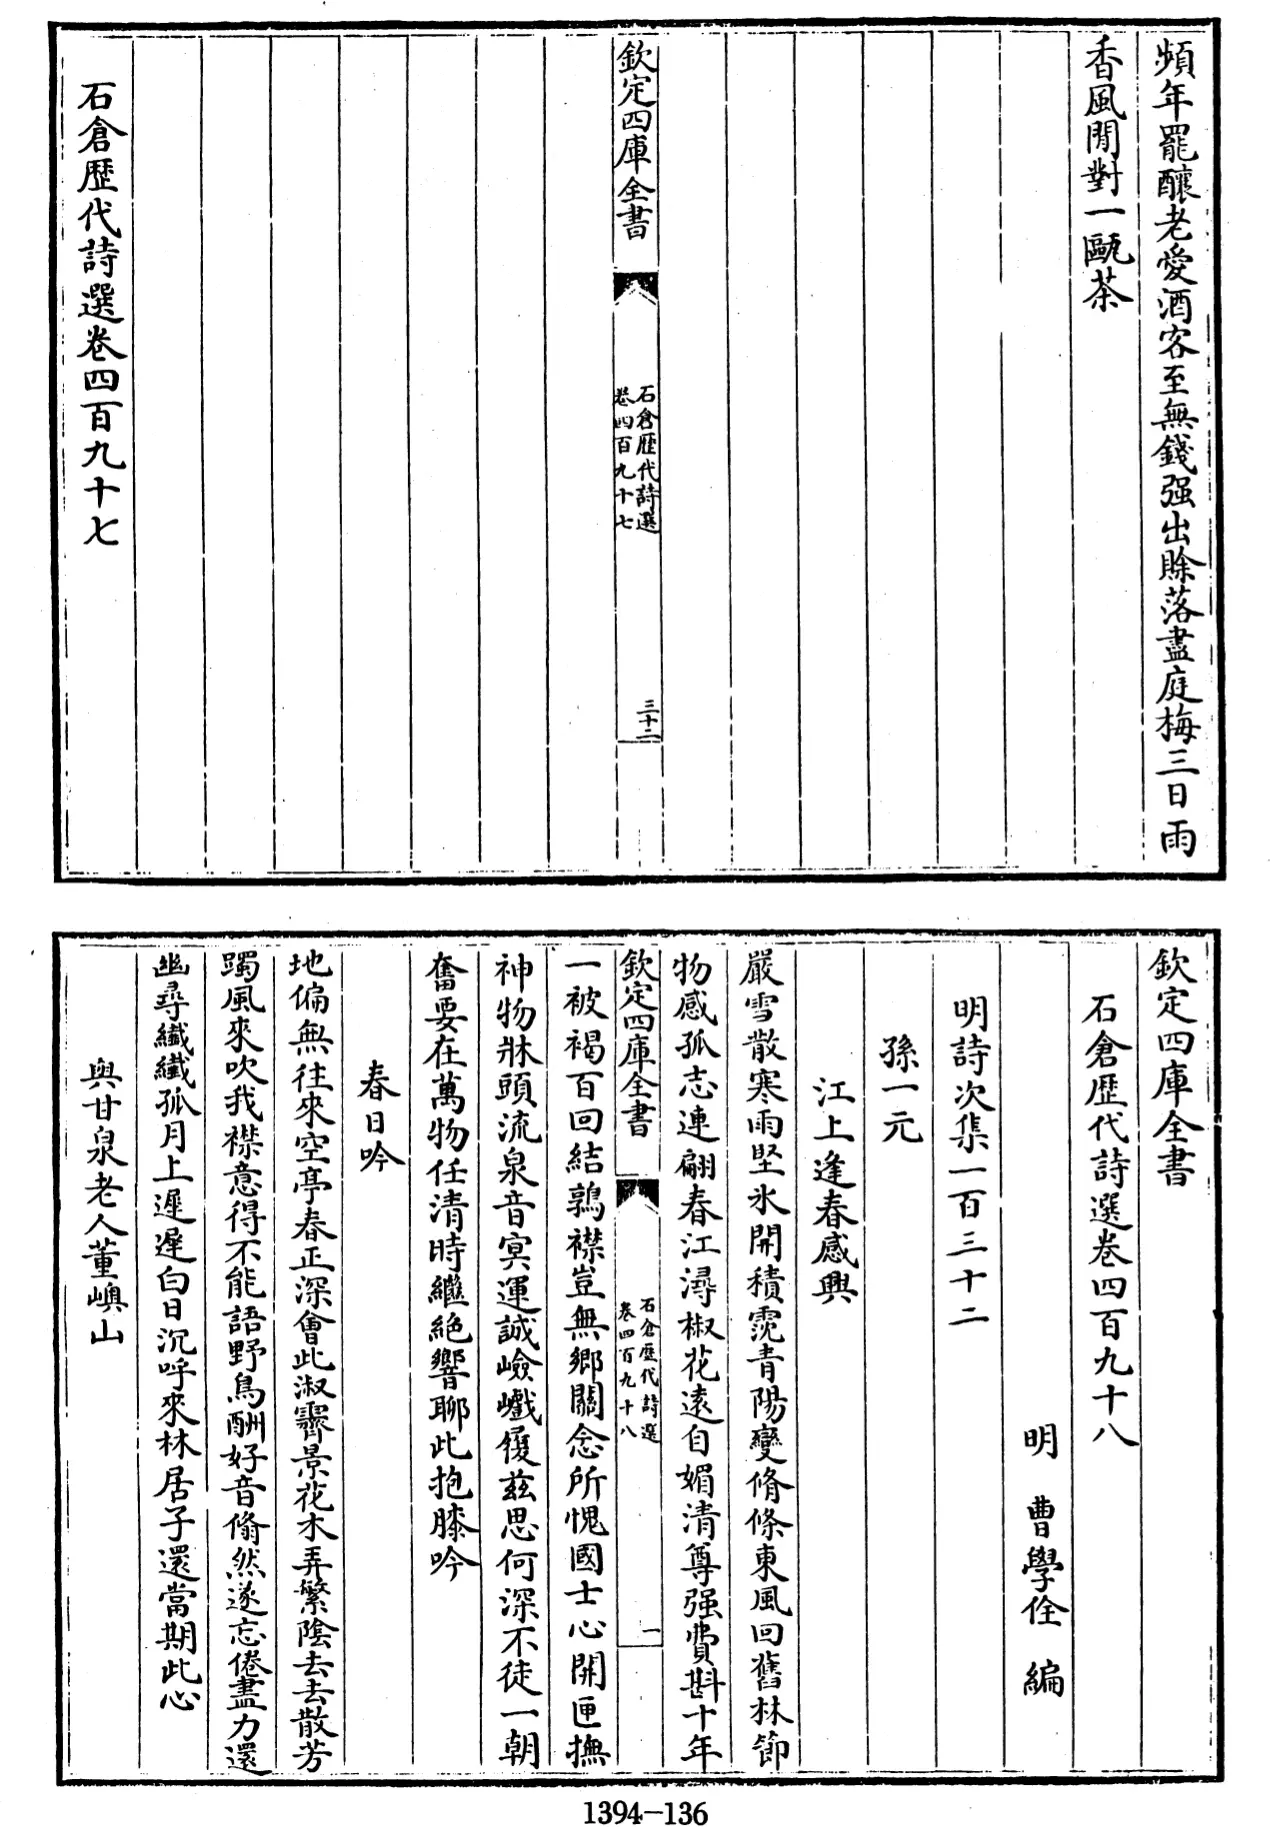 頻年罷釀老愛酒客至無錢强出賖落盡庭梅三日雨
香風閒對一甌茶
欽定四庫全書
石倉歷代詩選
卷四百九十七
三十二
石倉歷代詩選卷四百九十七
欽定四庫全書
石倉歷代詩選卷四百九十八
明 曹學佺 編
明詩次集一百三十二
孫一元
江上逢春感興
嚴雪散寒雨堅氷開積霓青陽變脩條東風回舊林節
物感孤志連翩春江潯椒花遠自媚清尊强費斟十年
欽定四庫全書
石倉歷代詩選
卷四百九十八
一
一被褐百回結鶉襟豈無鄉關念所愧國士心開匣撫
神物牀頭流泉音冥運誠嶮巇履茲思何深不徒一朝
奮要在萬物任清時繼絶響聊此抱膝吟
春日吟
地偏無往來空亭春正深會此淑霽景花木弄繁陰去去散芳
躅風來吹我襟意得不能語野鳥酬好音翛然遂忘倦盡力還
幽尋纖纖孤月上遲遲白日沉呼來林居子還當期此心
與甘泉老人董嶼山
1394-136